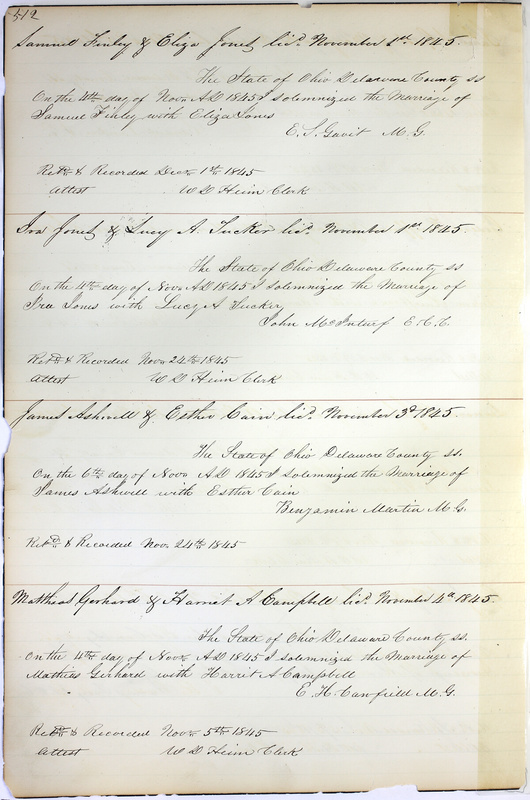 512
Samuel Finley & Eliza Jones licd. November 1st. 1845.
The State of Ohio Delaware County ss
On the 4th day of Novr AD 1845 I solemnized the Marriage of
Samuel Finley with Eliza Jones
E. S. Gavit M. G.
Retd & Recorded Decr 1st 1845
Attest W D Heim Clerk
Ira Jones & Lucy A. Tucker licd. November 1st 1845.
The State of Ohio Delaware County ss
On the 4th day of Novr AD 1845 I solemnized the Marriage of
Ira Jones with Lucy A Tucker
John McInturf
Retd & Recorded Novr 24th 1845
Attest W D Heim Clerk
James Ashwell & Esther Cain licd. November 3d 1845.
The State of Ohio Delaware County ss.
On the 6th day of Novr AD 1845 I solemnized the Marriage of
James Ashwell with Esther Cain
Benjamin Martin M. G.
Retd & Recorded Novr 24th 1845
Matthias Gerhard & Harriet A Campbell licd. November 4th 1845.
The State of Ohio Delaware County ss.
On the 4th day of Novr AD 1845 I solemnized the Marriage of
Mathias Gerhard with Harriet A Campbell
E. H. Canfield M. G.
Retd & Recorded Novr 5th 1845
Attest W D Heim Clerk